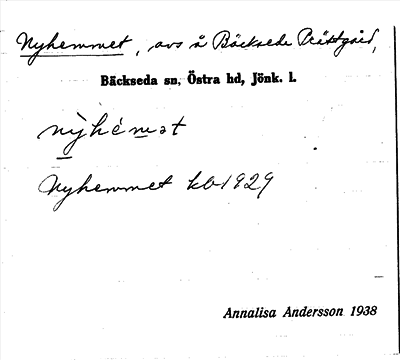 Nyhemmet, avs å Bäckseda Prästgård,
Bäckseda sn, Östra hd, Jönk. l.
nỳhémət
Nyhemmet kb 1929
Annalisa Andersson 1938